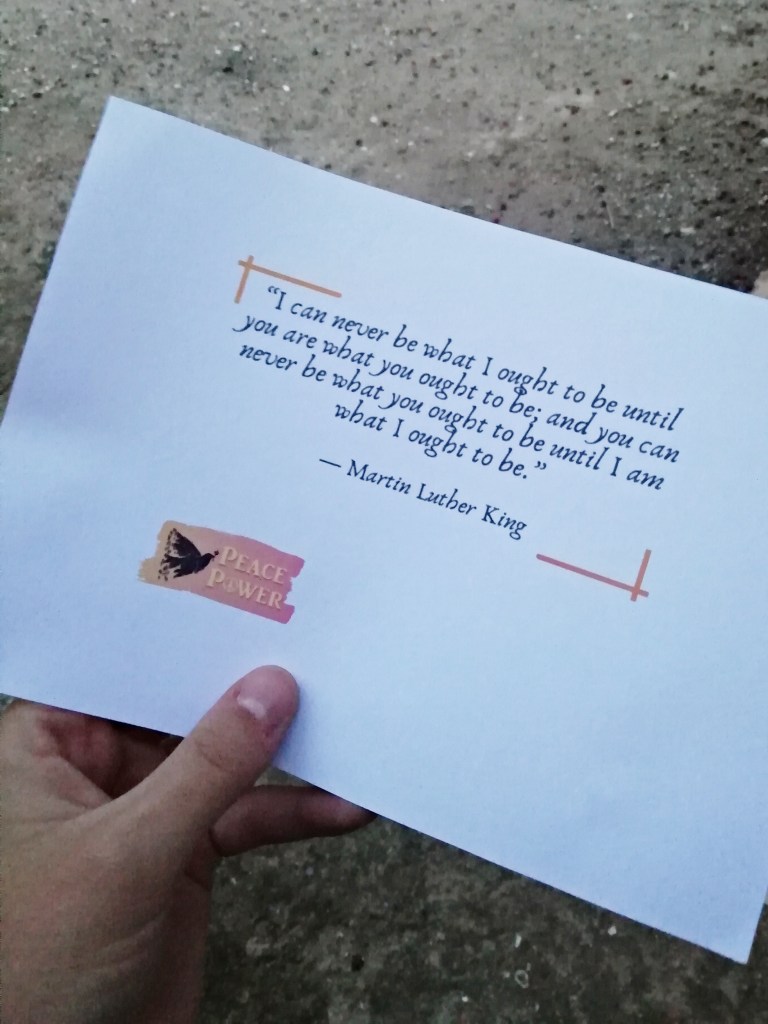 “I can never be what I ought to be until
you are what you ought to be; and you can
never be what you ought to be until I am
what I ought to be.”
— Martin Luther King
PEACE
POWER